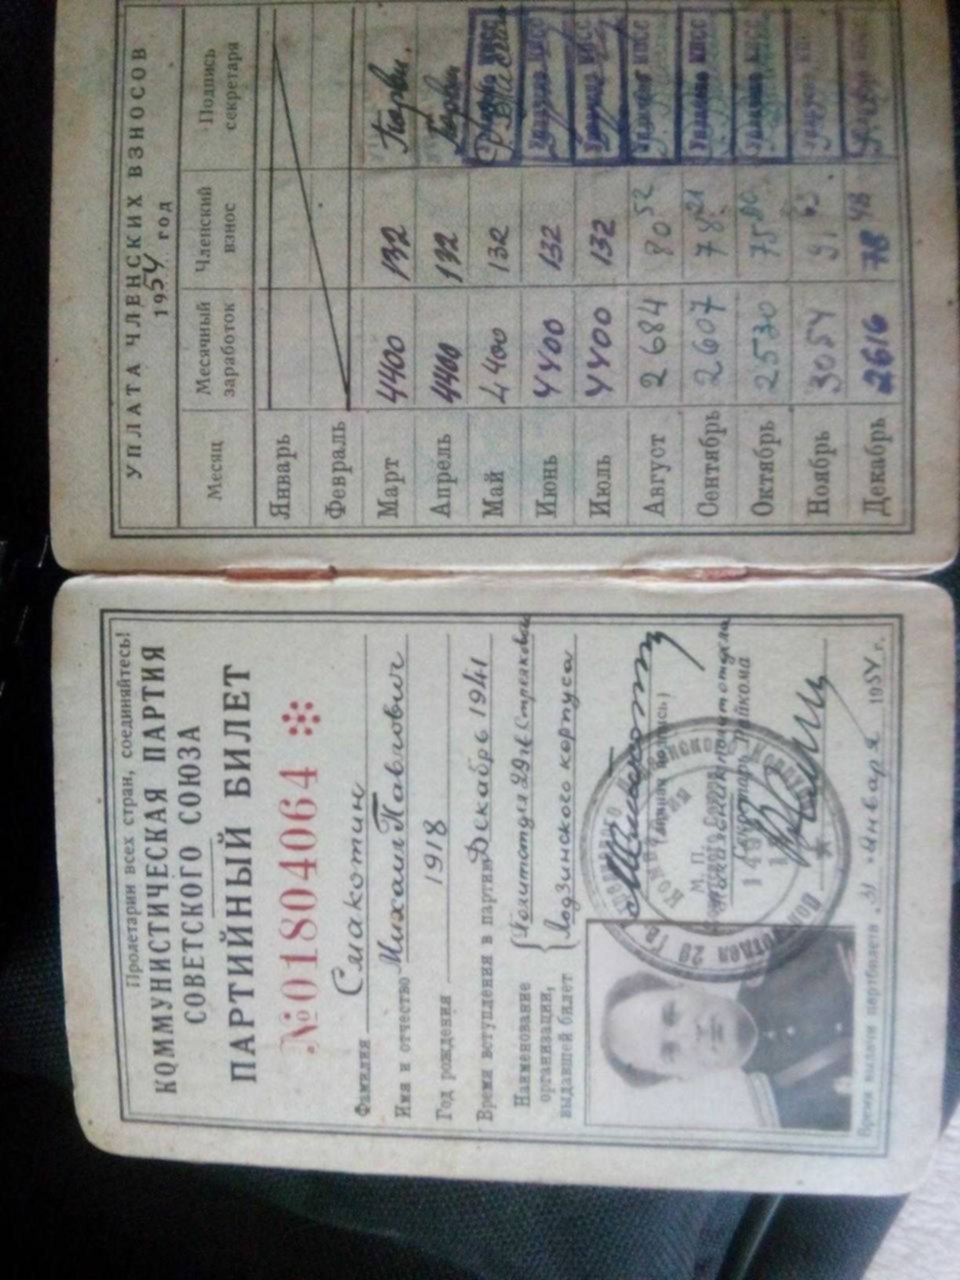 Пролетарии всех стран, соединяйтесь!
КОММУНИСТИЧЕСКАЯ ПАРТИЯ
СОВЕТСКОГО СОЮЗА
ПАРТИЙНЫЙ БИЛЕТ
№01804064
Фамилия Смакотин
Имя и отчество Михаил Павлович
Год рождения 1918
Время вступления в партию Декабрь 1941
Наименование организации, выдавшей билет
Политотдел 29 гв. Стрелковый
Лодзинского корпуса
(личная подпись)
М. П.
Секретарь Райкома
политотдела
Время выдачи партбилета „31 “ января 1954 г.
УПЛАТА ЧЛЕНСКИХ ВЗНОСОВ
1954 год
Месяц Месячный заработок Членский взнос Подпись секретаря
Январь
Февраль
Март 4400 132
Апрель 4400 132
Май 4400 132
Июнь 4400 132
Июль 4400 132
Август 2684 80 52
Сентябрь 2607 78 21
Октябрь 2530 75 90
Ноябрь 3054 91
Декабрь 2616 78 48